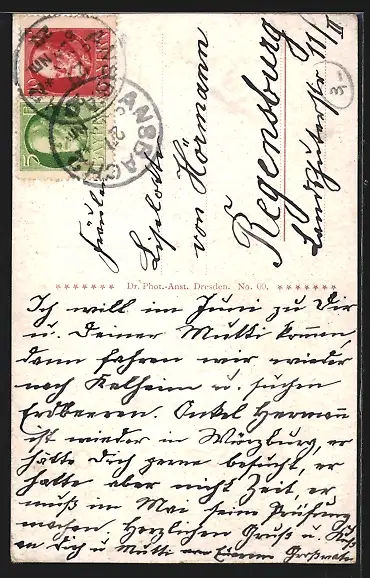 Fräulein
Liselotte
von Hörmann
Regensburg
Landshuterstr. 11/II
3,-
ANSBACH
BAYERN
5
Dr. Phot.-Anst. Dresden. No. 60.
Ich will im Juni zu Dir
u. Deiner Mutti kommen,
dann fahren wir wieder
nach Kelheim u. suchen
Erdbeeren. Onkel Hermann
ist wieder in Würzburg, er
hätte Dich gerne besucht, er
hatte aber nicht Zeit, er
muß im Mai seine Prüfung
machen. Herzlichen Gruß u. Kuß
an Dich u Mutti von Eurem Großvater